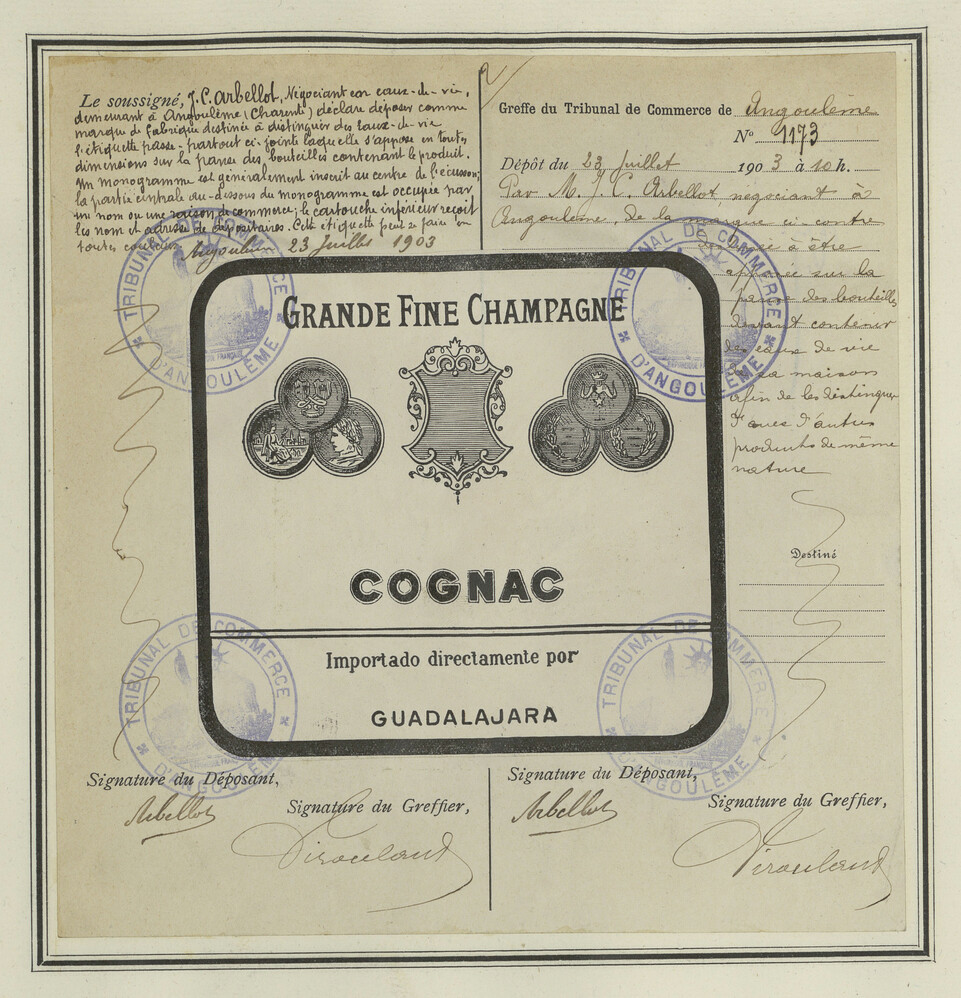 Le soussigné, J. C. Arbellot, Négociant en eaux-de-vie,
demeurant à Angoulême (Charente) déclare déposer comme
marque de fabrique destinée à distinguer des eaux-de-vie
l'étiquette passe-partout ci-jointe laquelle s'appose en toutes
dimensions sur la panse des bouteilles contenant le produit.
Un monogramme est généralement inscrit au centre de l'écusson;
la partie centrale au-dessous du monogramme est occupée par
un nom ou une raison de commerce; le cartouche inférieur reçoit
les nom et adresse de dépositaires. Cette étiquette peut se faire en
toutes couleurs. Angoulême 23 Juillet 1903
Greffe du Tribunal de Commerce de Angoulême
N° 1173
Dépôt du 23 Juillet 1903 à 10 h.
Par M. J. C. Arbellot, négociant à
Angoulême, de la marque ci-contre
à être
apposée sur la
panse des bouteilles
devant contenir
les eaux de vie
de sa maison
afin de les distinguer
d'autres
produits de même
nature
Destiné
TRIBUNAL DE COMMERCE
D'ANGOULÊME
TRIBUNAL DE COMMERCE
D'ANGOULÊME
GRANDE FINE CHAMPAGNE
COGNAC
Importado directamente por
GUADALAJARA
TRIBUNAL DE COMMERCE
D'ANGOULÊME
TRIBUNAL DE COMMERCE
D'ANGOULÊME
Signature du Déposant,
Arbellot
Signature du Greffier,
Signature du Déposant,
Arbellot
Signature du Greffier,